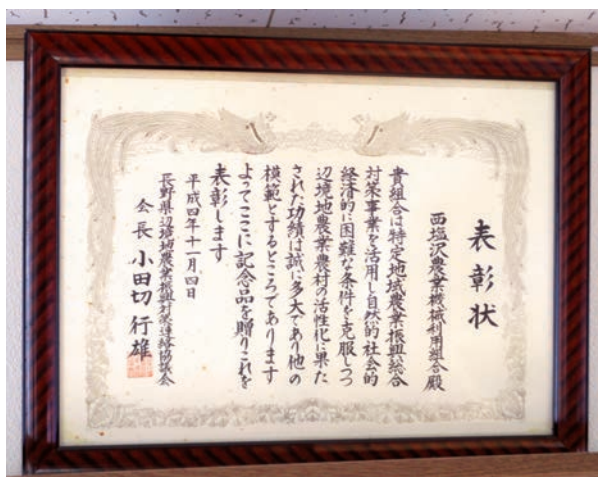 表彰状
西塩沢農業機械利用組合殿
貴組合は特定地域農業振興総合
対策事業を活用し自然的社会的
経済的に困難な条件を克服しつつ
辺境地農業農村の活性化に果た
された功績は誠に多大であり他の
模範とするところであります
よってここに記念品を贈りこれを
表彰します
平成四年十一月四日
長野県辺境地農業振興対策連絡協議会
会長 小田切行雄